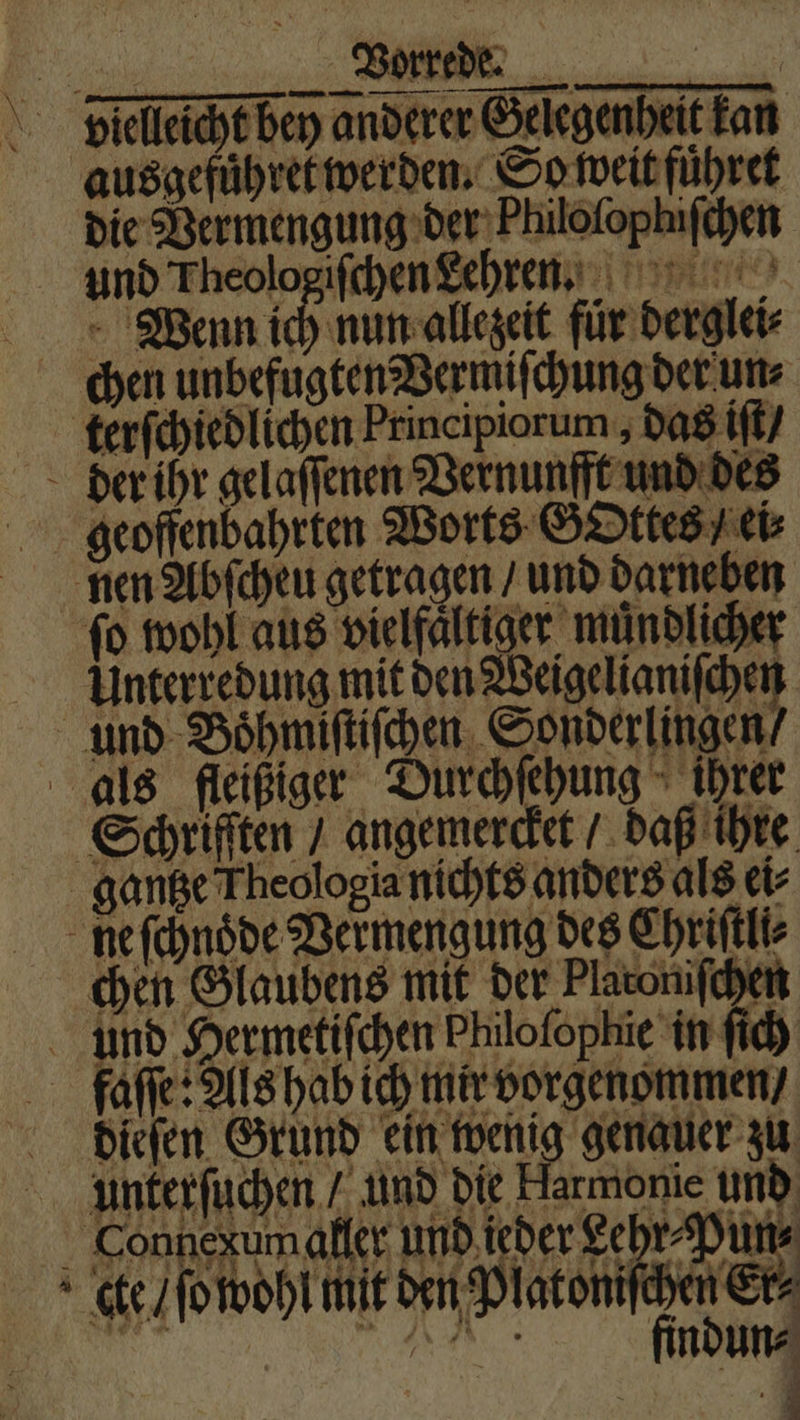 Vorrede.
vielleicht bey anderer Gelegenheit kan
ausgefuͤhret werden. So weit fuͤhret
die Vermengung der Philoſophiſchen
und Theologiſchen Lehren.
Wenn ich nun allezeit fuͤr derglei⸗
chen unbefugten Vermiſchung der un⸗
terſchiedlichen Principiorum, das iſt/
der ihr gelaſſenen Vernunfft und des
geoffenbahrten Worts GOttes / ei⸗
nen Abſcheu getragen / und darneben
ſo wohl aus vielfaͤltiger muͤndlicher
Unterredung mit den Weigelianiſchen
und Boͤhmiſtiſchen Sonderlingen/
als fleißiger Durchſehung ihrer
Schrifften / angemercket / daß ihre
gantze Theologia nichts anders als ei⸗
ne ſchnoͤde Vermengung des Chriſtli⸗
chen Glaubens mit der Platoniſchen
und Hermetiſchen Philoſophie in ſich
faſſe: Als hab ich mir vorgenommen/
dieſen Grund ein wenig genauer zu
unterſuchen / und die Harmonie und
Connexum aller und ieder Lehr⸗Pun⸗
cte / ſo wohl mit den Platoniſchen Er⸗
findun⸗